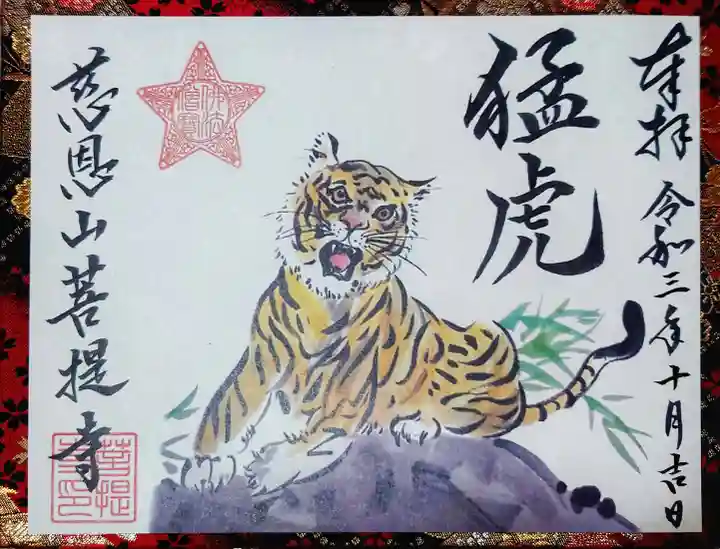 奉拝 令和三年十月吉日
猛虎
慈恩山菩提寺
佛法僧寶
菩提寺印